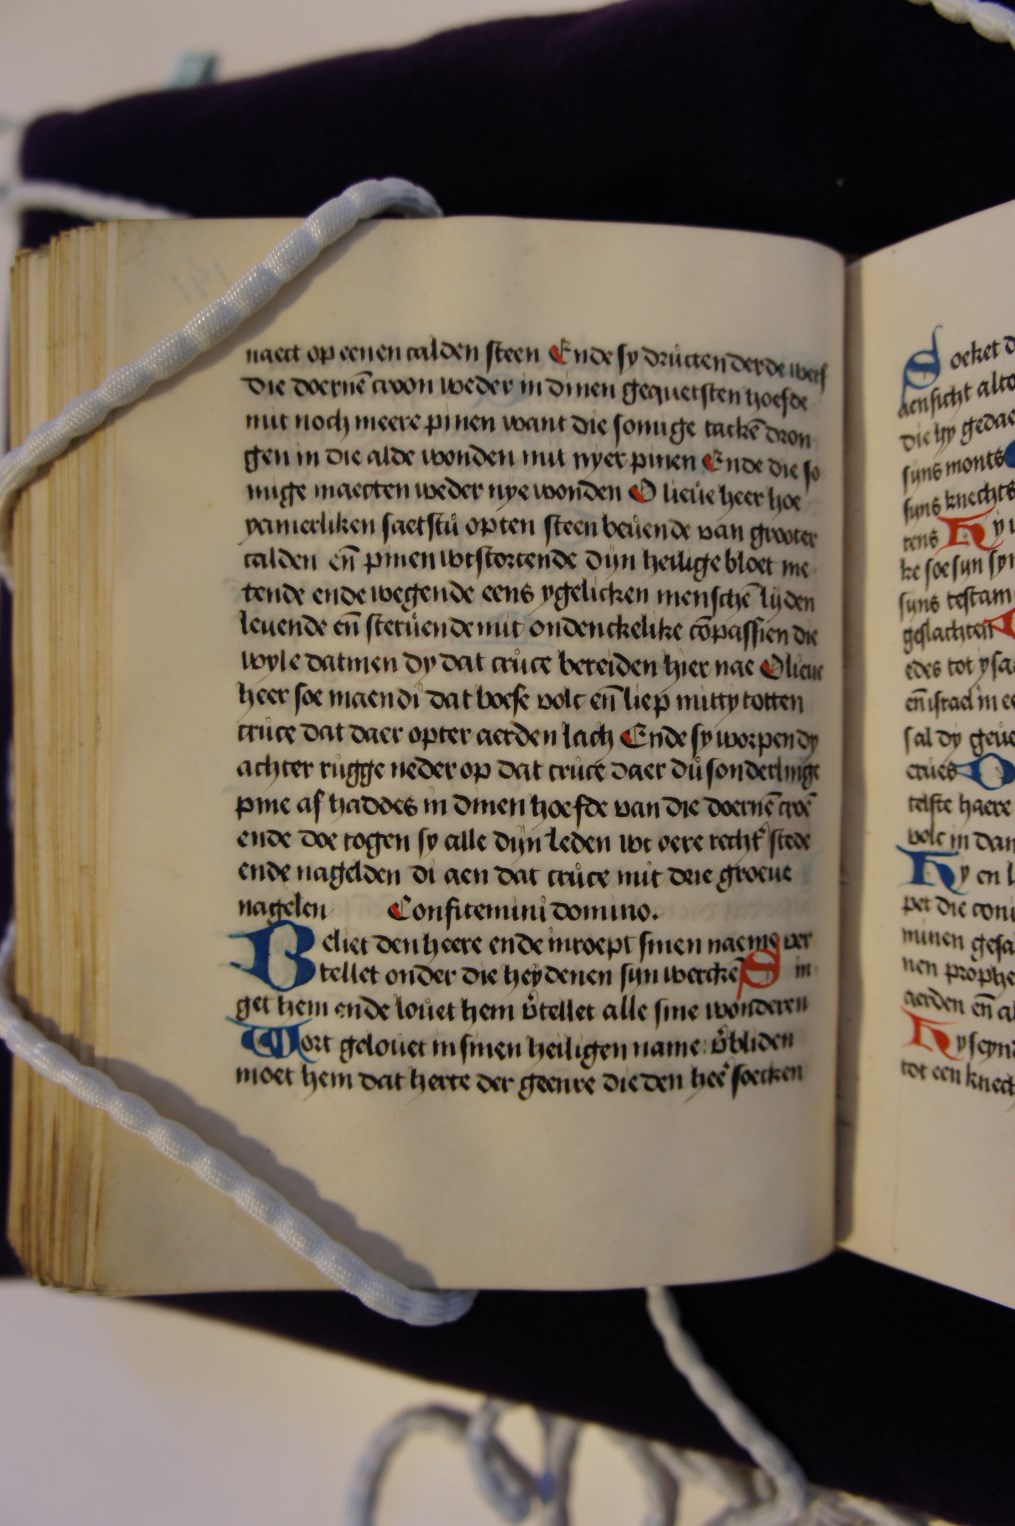 naect op eenen calden steen Ende sy dructen derde werf
die doernē croon weder in dinen gequetsten hoefde
mit noch meere pinen want die somige tackē dron
gen in die alde wonden mit nyer pinen Ende die so
mige maecten weder nye wonden O lieue heer hoe
yamerliken saetstu opten steen beuende van grooter
calden eñ pinen wtstortende dijn heilige bloet me
tende ende wegende eens ygelicken menschē lijden
leuende eñ steruende mit ondenckelike cōpassien die
wyle datmen dy dat cruce bereiden hier nae O lieue
heer soe maendi dat boese volc eñ liep mitty totten
cruce dat daer opter aerden lach Ende sy worpen dy
achter rugge neder op dat cruce daer du sonderlinge
pine af haddes in dinen hoefde van die doernē croē
ende doe togen sy alle dijn leden wt oere recht' stede
ende nagelden di aen dat cruce mit drie groeue
nagelen Confitemini domino.
Beliet den heere ende inroept sinen naeme ver
tellet onder die heydenen sijn werckē Sin
get hem ende louet hem v'tellet alle sine wonderen
Wort gelouet in sinen heiligen name: v'bliden
moet hem dat herte der geenre die den hee' soecken
Soeket d
aensicht alto
die hy gedae
sijns monts
sijns knechts
tens Hy i
ke soe sijn syn
sijns testam
geslachten
edes tot ysa
eñ israel in e
sal dy geue
erues
telste haere
volc in dan
Hy en l
pet die coni
minen gesa
nen prophe
aerden eñ al
Hy seyn
tot een knech